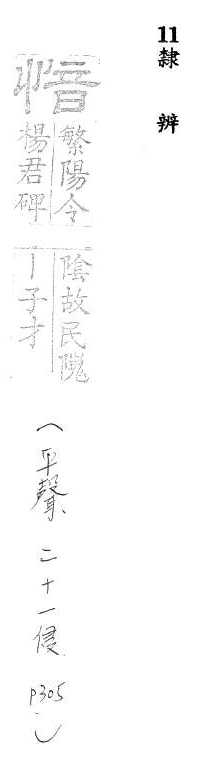 11 隸 辨
愔
繁陽令
楊君碑
陰故民隗
丨子才
(平聲、二十一侵 P305)